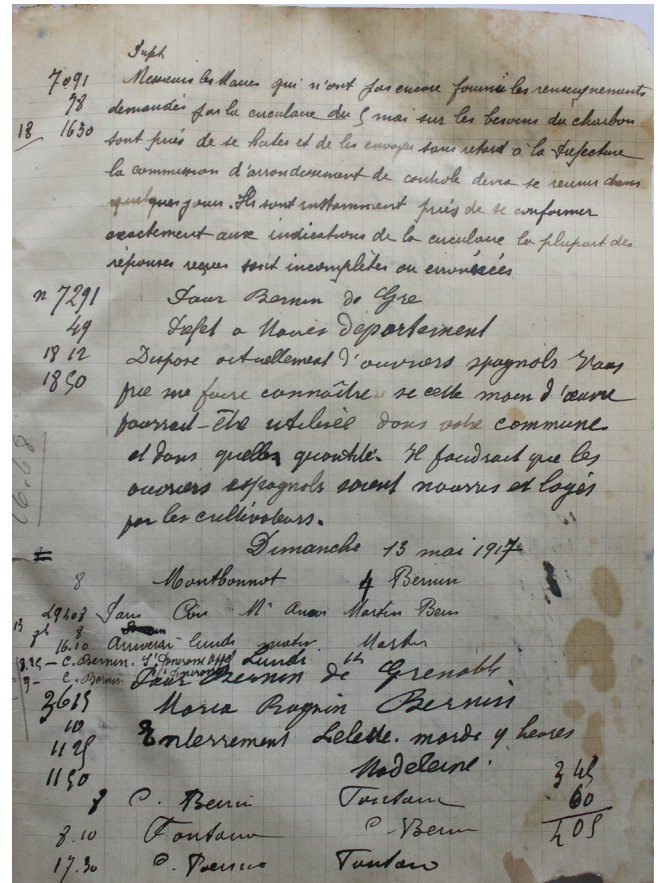 7091 Messieurs les Maires qui n'ont pas encore fourni les renseignements
78 demandés par la circulaire du 5 mai sur les besoins du charbon
18 1630 sont priés de se hater et de les envoyer sans retard à la Prefecture
la commission d'arrondissement de controle devra se reunir dans
quelques jours. Ils sont instamment priés de se conformer
exactement aux indications de la circulaire la plupart des
réponses reçues sont incomplètes ou erronéées
n 7291 Pour Bernin de Gre
49 Prefet a Maires département
18 12 Dispose actuellement d'ouvriers espagnols Vous
1850 prie me faire connaître si cette main d'œuvre
pourrait-être utilisée dans votre commune
et dans quelles quantité. Il faudrait que les
16.68
ouvriers espagnols soient nourris et logés
par les cultivateurs.
Dimanche 13 mai 1917
8 Montbonnot 4 Bernin
Martin Bern
16.10 Arriverai lundi Martin
8.25 - C. Bernin. Lundi
9 - C. Bernin Pour Bernin de Grenoble
3615 Maria Roguin Bernin
10 Enterrement mardi 9 heures
1125
1150 Madeleine. 345
8 C. Bernin Fontaine 60
8.10 Fontaine C. Bernin 405
17.30 C. Bernin Fontain